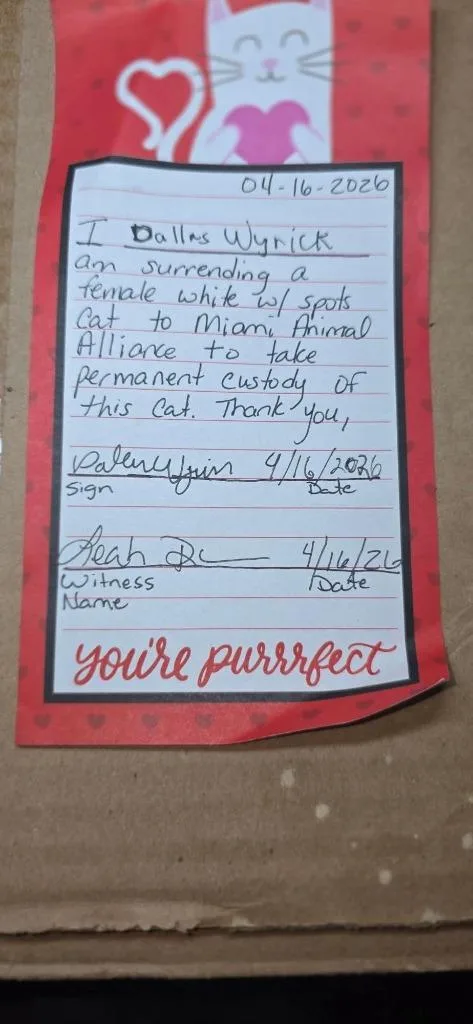 04-16-2026
I Dallas Wyrick
am surrending a
female white w/ spots
Cat to Miami Animal
Alliance to take
permanent custody of
this Cat. Thank you,
4/16/2026
Sign Date
Leah 4/16/26
Witness Date
Name
you're purrrfect